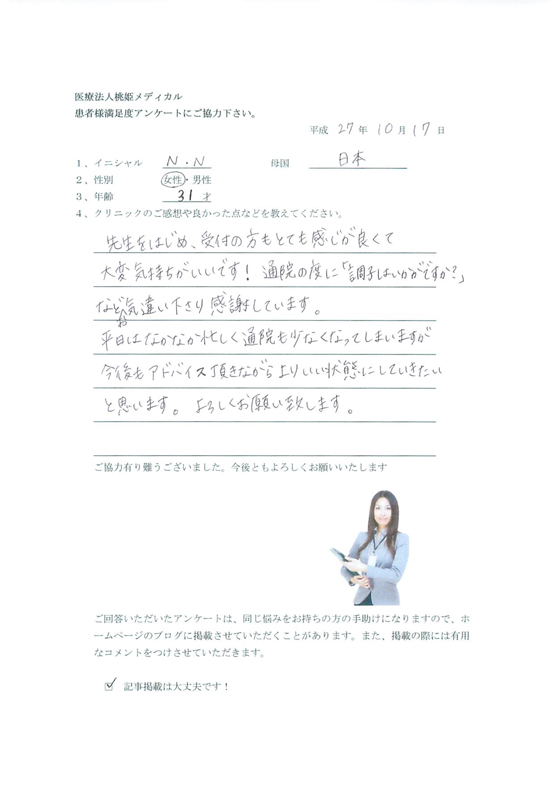 医療法人桃姫メディカル
患者様満足度アンケートにご協力下さい。
平成 27 年 10 月 17 日
1、イニシャル N.N 母国 日本
2、性別 女性・男性
3、年齢 31 才
4、クリニックのご感想や良かった点などを教えてください。
先生をはじめ、受付の方もとても感じが良くて
大変気持ちがいいです! 通院の度に「調子はいかがですか?」
などお気遣い下さり感謝しています。
平日はなかなか忙しく通院も少なくなってしまいますが
今後もアドバイス頂きながらよりいい状態にしていきたい
と思います。よろしくお願い致します。
ご協力有り難うございました。今後ともよろしくお願いいたします
ご回答いただいたアンケートは、同じ悩みをお持ちの方の手助けになりますので、ホ
ームページのブログに掲載させていただくことがあります。また、掲載の際には有用
なコメントをつけさせていただきます。
☑ 記事掲載は大丈夫です!